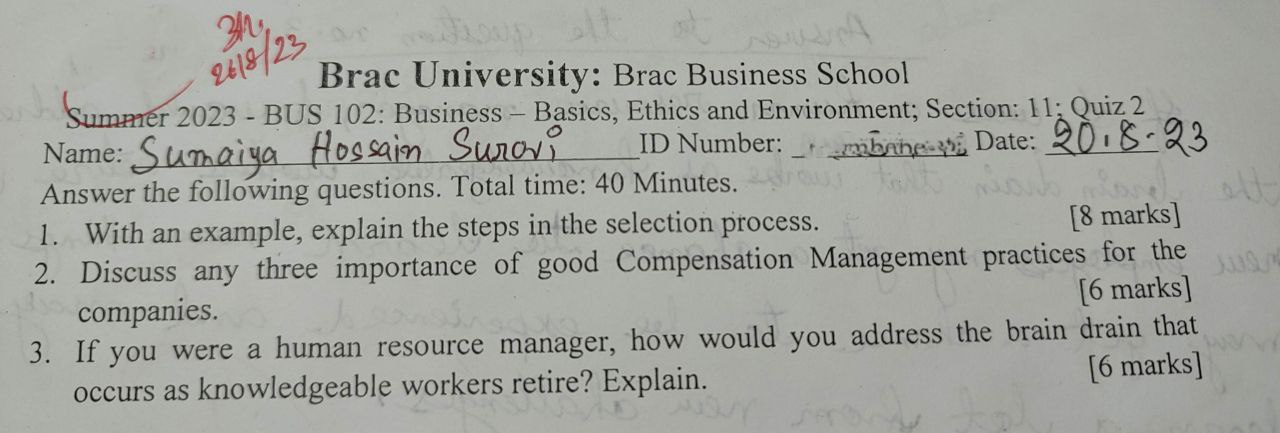 26/8/23
Brac University: Brac Business School
Summer 2023 - BUS 102: Business – Basics, Ethics and Environment; Section: 11; Quiz 2
Name: Sumaiya Hossain Surovi ID Number: Date: 20.8-23
Answer the following questions. Total time: 40 Minutes.
1. With an example, explain the steps in the selection process. [8 marks]
2. Discuss any three importance of good Compensation Management practices for the
companies. [6 marks]
3. If you were a human resource manager, how would you address the brain drain that
occurs as knowledgeable workers retire? Explain. [6 marks]